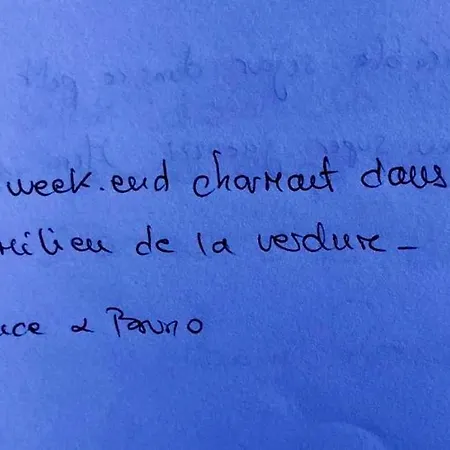 week.end charmant dans
milieu de la verdure -
& Bruno